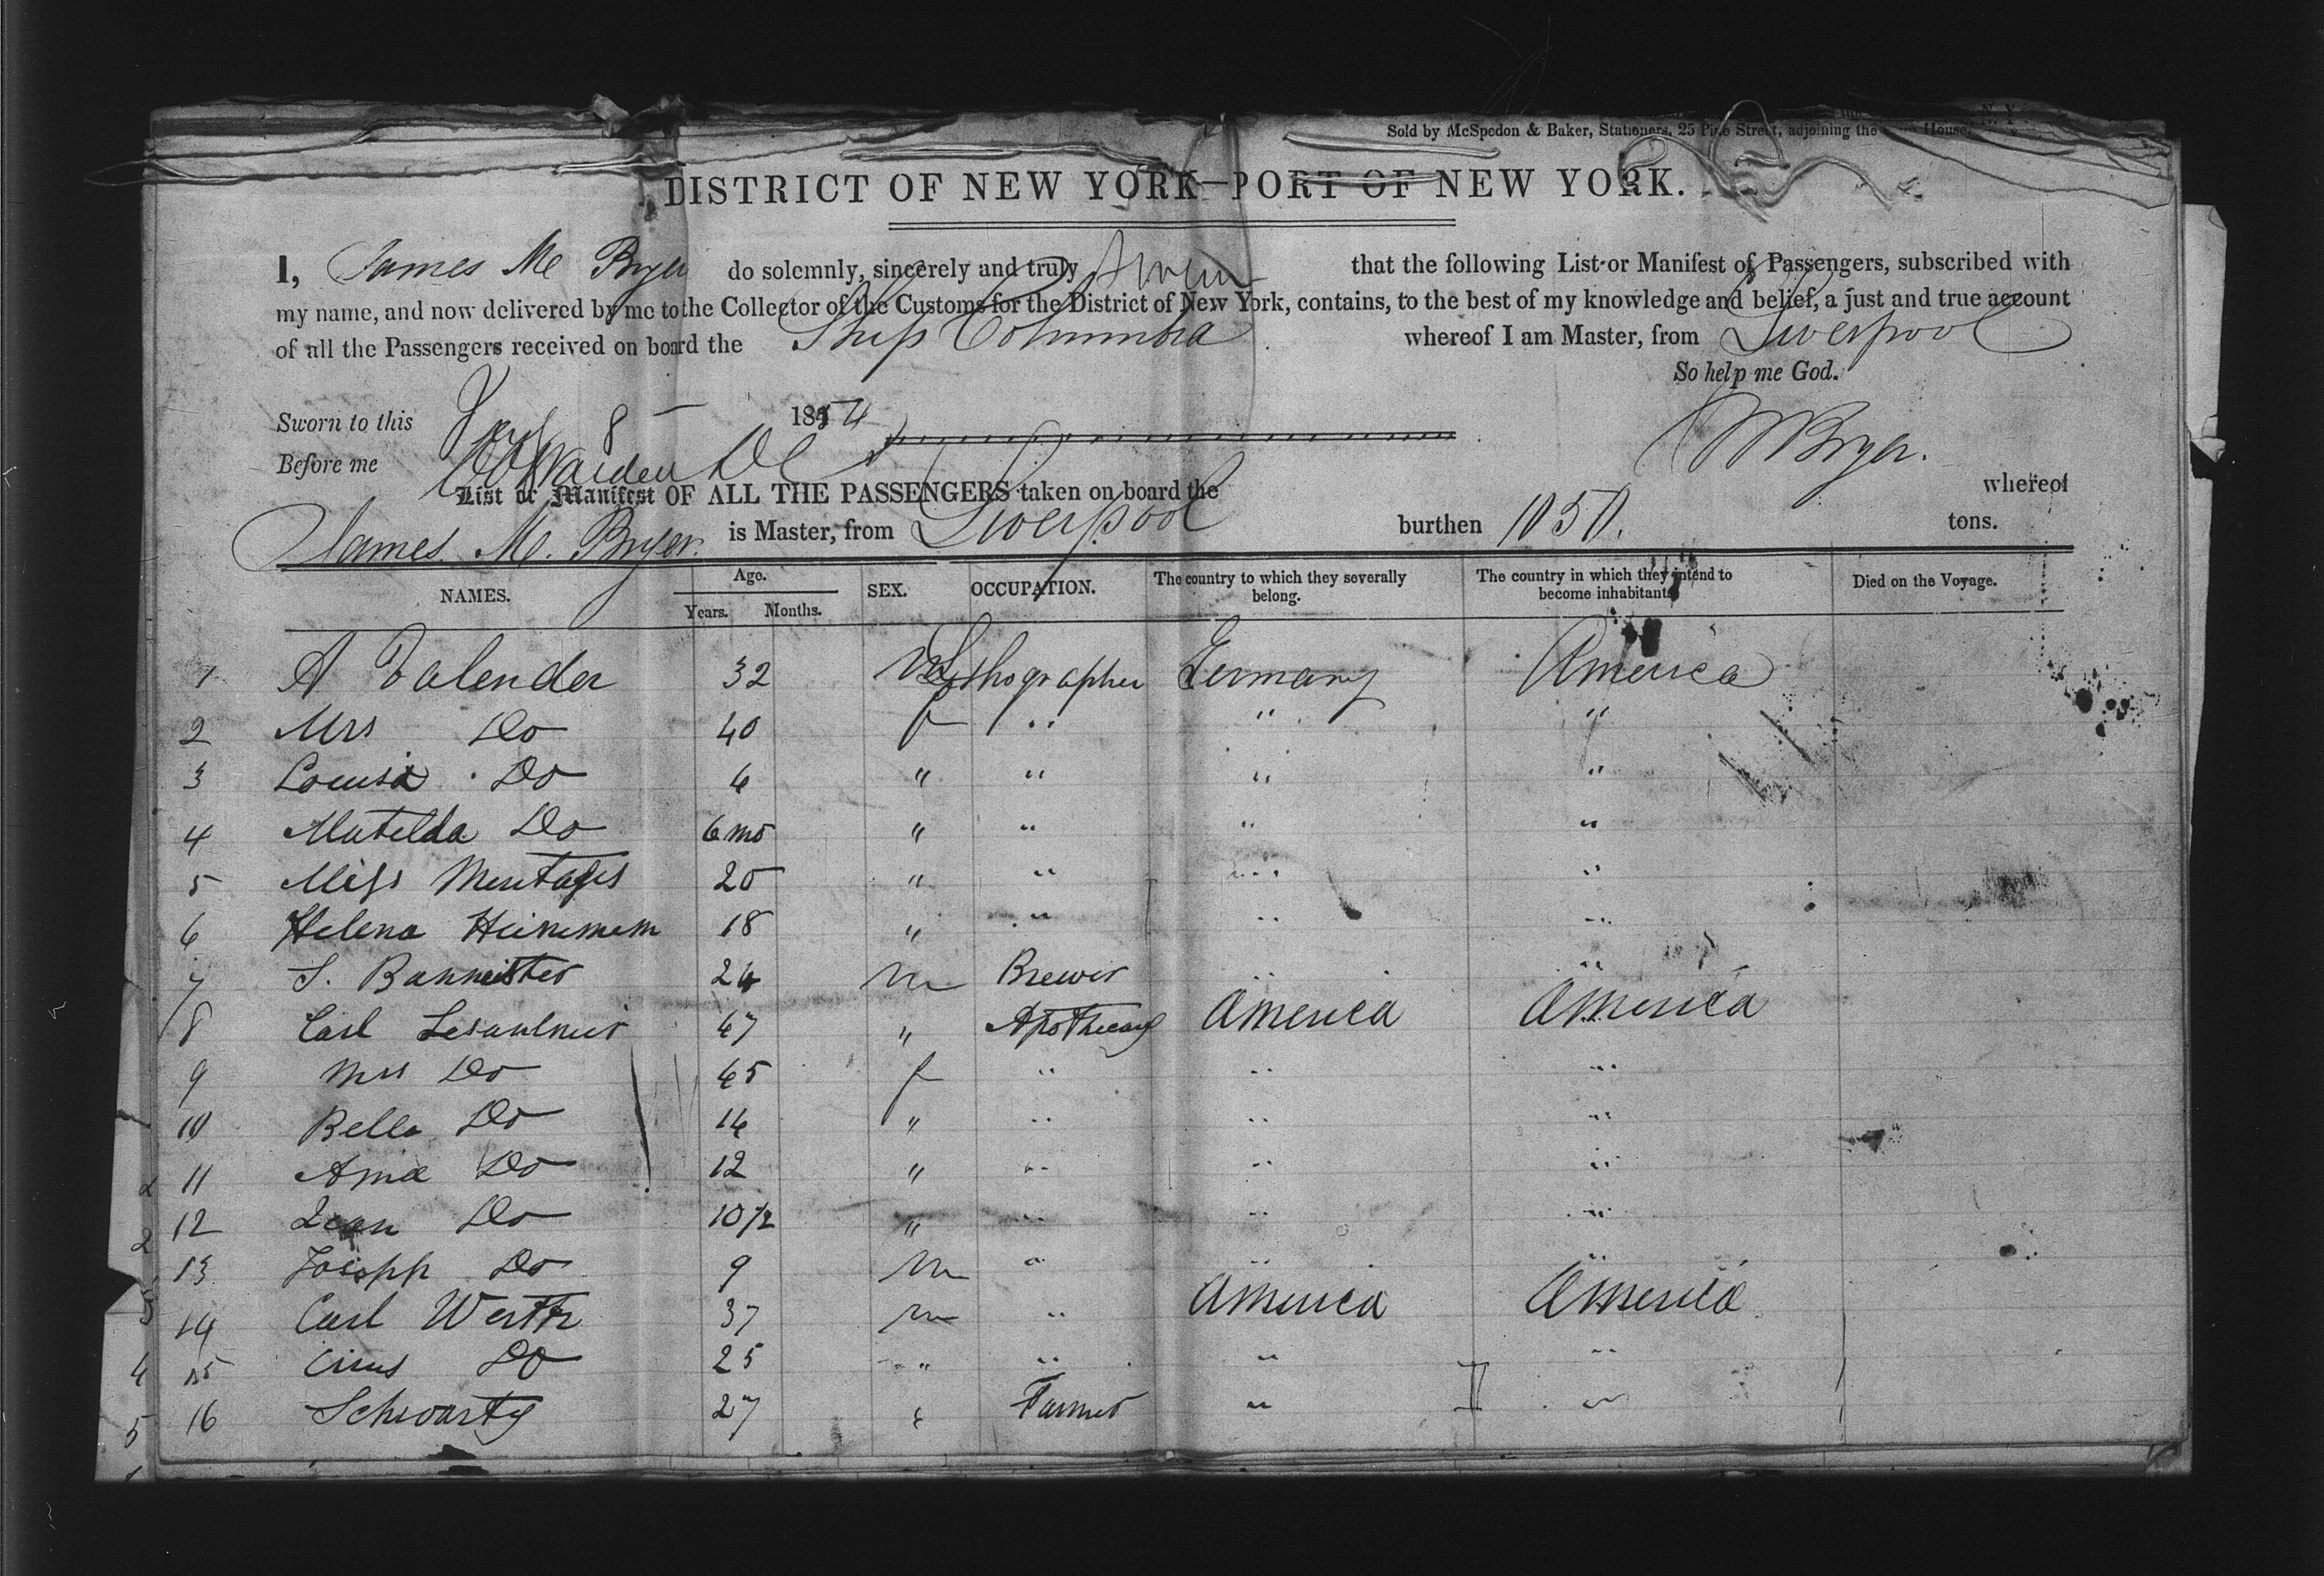 Sold by McSpedon & Baker, Stationers, 25 Pine Street, adjoining the House, N. Y.
DISTRICT OF NEW YORK—PORT OF NEW YORK.
I, James Mc Bryer do solemnly, sincerely and truly Swear that the following List or Manifest of Passengers, subscribed with
my name, and now delivered by me to the Collector of the Customs for the District of New York, contains, to the best of my knowledge and belief, a just and true account
of all the Passengers received on board the Ship Columbia whereof I am Master, from Liverpool
So help me God.
Sworn to this 8 1854
Before me
M Bryer.
List or Manifest OF ALL THE PASSENGERS taken on board the whereof
James M. Bryer. is Master, from Liverpool burthen 1050. tons.
NAMES. Age. Years. Months. SEX. OCCUPATION. The country to which they severally belong. The country in which they intend to become inhabitants. Died on the Voyage.
1 A Valender 32 M Lithographer Germany America
2 Mrs Do 40 f " " "
3 Louisa Do 4 " " " "
4 Matilda Do 6 mo " " " "
5 Miss 20 " " " "
6 Helena Heinemem 18 " " " "
7 S. Bannister 24 m Brewer " "
8 Carl Lesaulnier 47 " Apothecary America America
9 Mrs Do 45 f " " "
10 Bella Do 14 " " " "
11 Ama Do 12 " " " "
12 Do 10 1/2 " " " "
13 Joseph Do 9 m " " "
14 Carl Werth 37 m " America America
15 Do 25 " " " "
16 Schwartz 27 " Farmer " "